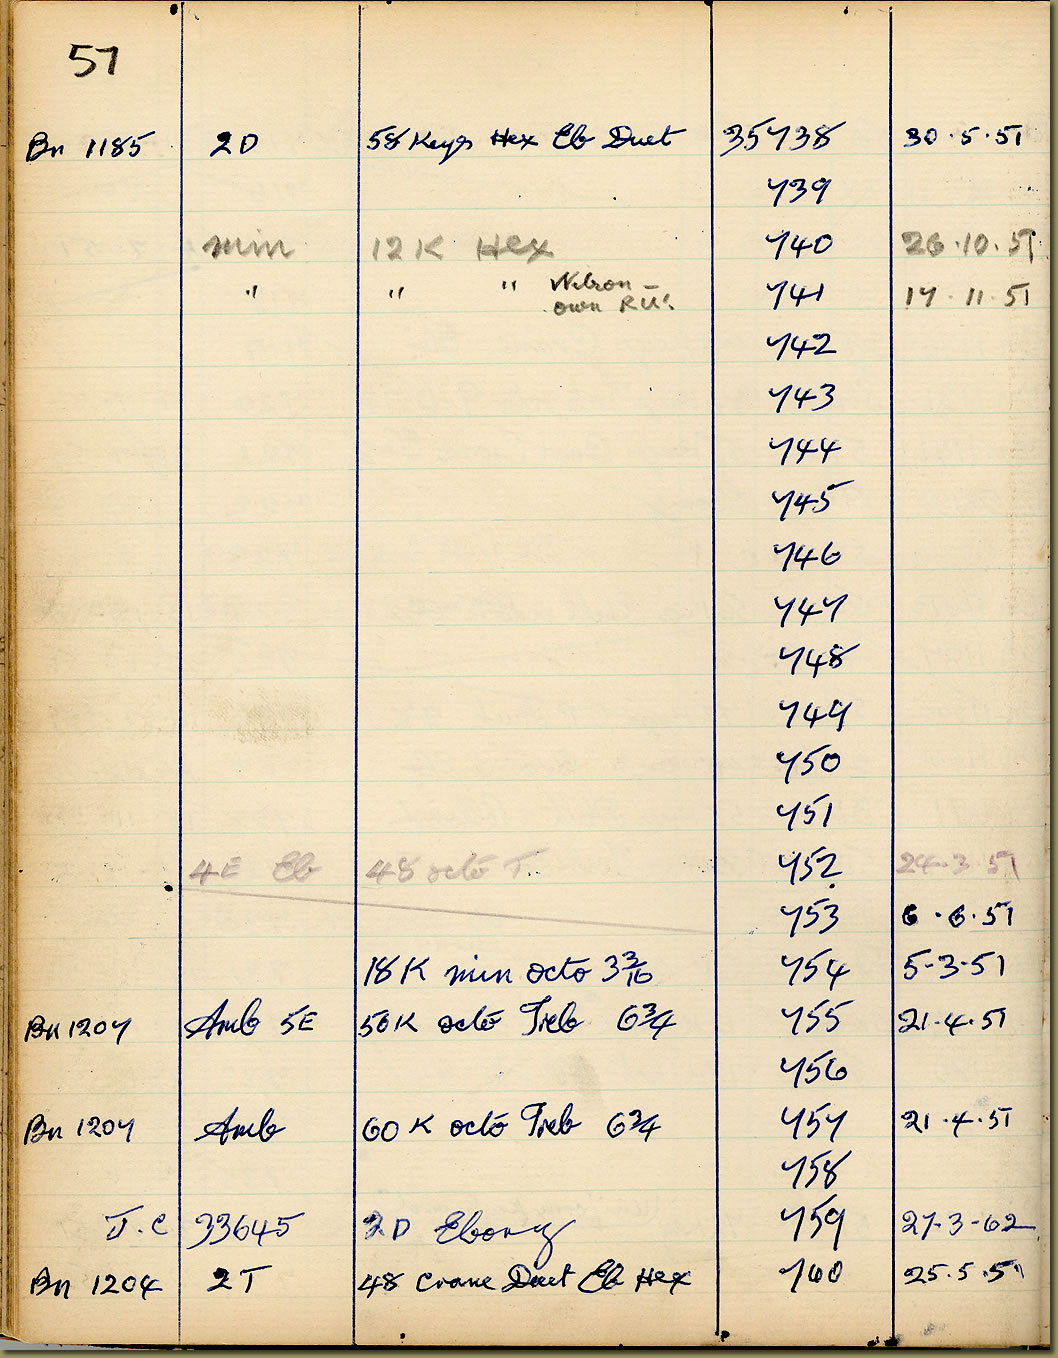 57
Bn 1185 2D 58 Keys Hex Eb Duet 35738 30·5·51
739
min 12 K Hex 740 26·10·51
" " " Wilson – 741 17·11·51
own R.U!
742
743
744
745
746
747
748
749
750
751
4E Eb 48 octo T.. 752 24·3·51
753 6·6·51
18 K min octo 3 3/16 754 5-3-51
Bn 1207 Amb 5E 56 K octo Treb 6 3/4 755 21·4·51
756
Bn 1207 Amb 60 K octo Treb 6 3/4 757 21·4·51
758
T.C 33645 2D Ebony 759 27-3-62
Bn 1204 2T 48 Crane Duet Eb Hex 760 25.5.51